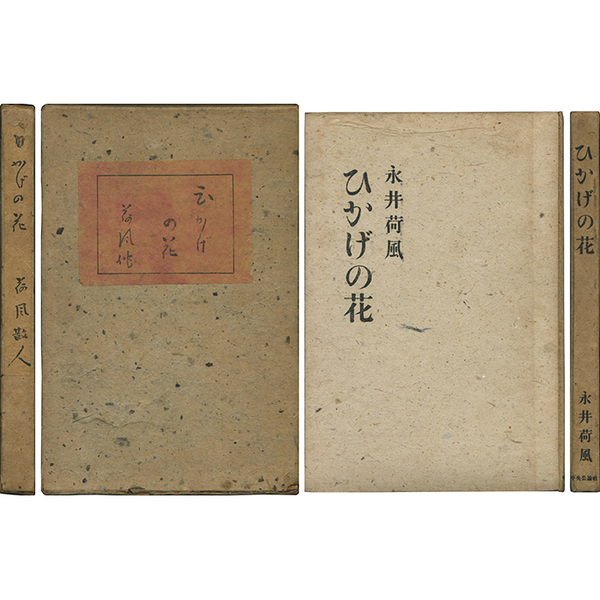 日かげの花 荷風散人
ひかげ
の花
荷風作
永井荷風
ひかげの花
ひかげの花
永井荷風
中央公論社